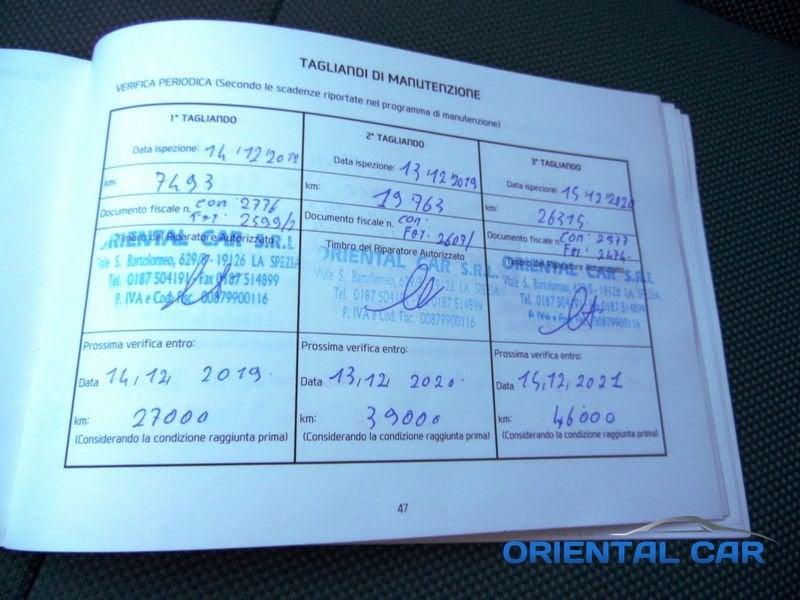 TAGLIANDI DI MANUTENZIONE
VERIFICA PERIODICA (Secondo le scadenze riportate nel programma di manutenzione)
1° TAGLIANDO
Data ispezione: 14 12 2018
km: 7493
Documento fiscale n. con 2776
Fat. 2599/2
Timbro del Riparatore Autorizzato
ORIENTAL CAR S.R.L
Viale S. Bartolomeo, 629/ - 19126 LA SPEZIA
Tel. 0187 504191 - Fax 0187 514899
P. IVA e Cod. Fisc. 00879900116
Prossima verifica entro:
Data 14,12, 2019.
km: 27000
(Considerando la condizione raggiunta prima)
2° TAGLIANDO
Data ispezione: 13 12 2019
km: 19 763
Documento fiscale n. con.
Fat. 2607/
Timbro del Riparatore Autorizzato
ORIENTAL CAR S.R.L
Viale S. Bartolomeo, 19126 LA SPEZIA
Tel. 0187 0187 514899
P. IVA e Cod. Fisc. 00879900116
Prossima verifica entro:
Data 13,12, 2020.
km: 39000
(Considerando la condizione raggiunta prima)
3° TAGLIANDO
Data ispezione: 15 12 2020
km: 26315
Documento fiscale n. con 2577
Fat. 2474.
Timbro del Riparatore Autorizzato
ORIENTAL CAR S.R.L
Viale S. Bartolomeo, 19126 LA SPEZIA
Tel. 0187 0187 514899
P. IVA e 00879900116
Prossima verifica entro:
Data 15,12,2021
km: 46000
(Considerando la condizione raggiunta prima)
47
ORIENTAL CAR